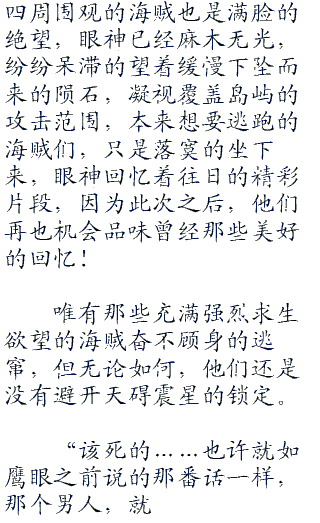 四周围观的海贼也是满脸的
绝望，眼神已经麻木无光，
纷纷呆滞的望着缓慢下坠而
来的陨石，凝视覆盖岛屿的
攻击范围，本来想要逃跑的
海贼们，只是落寞的坐下
来，眼神回忆着往日的精彩
片段，因为此次之后，他们
再也机会品味曾经那些美好
的回忆！
唯有那些充满强烈求生
欲望的海贼奋不顾身的逃
窜，但无论如何，他们还是
没有避开天碍震星的锁定。
“该死的……也许就如
鹰眼之前说的那番话一样，
那个男人，就